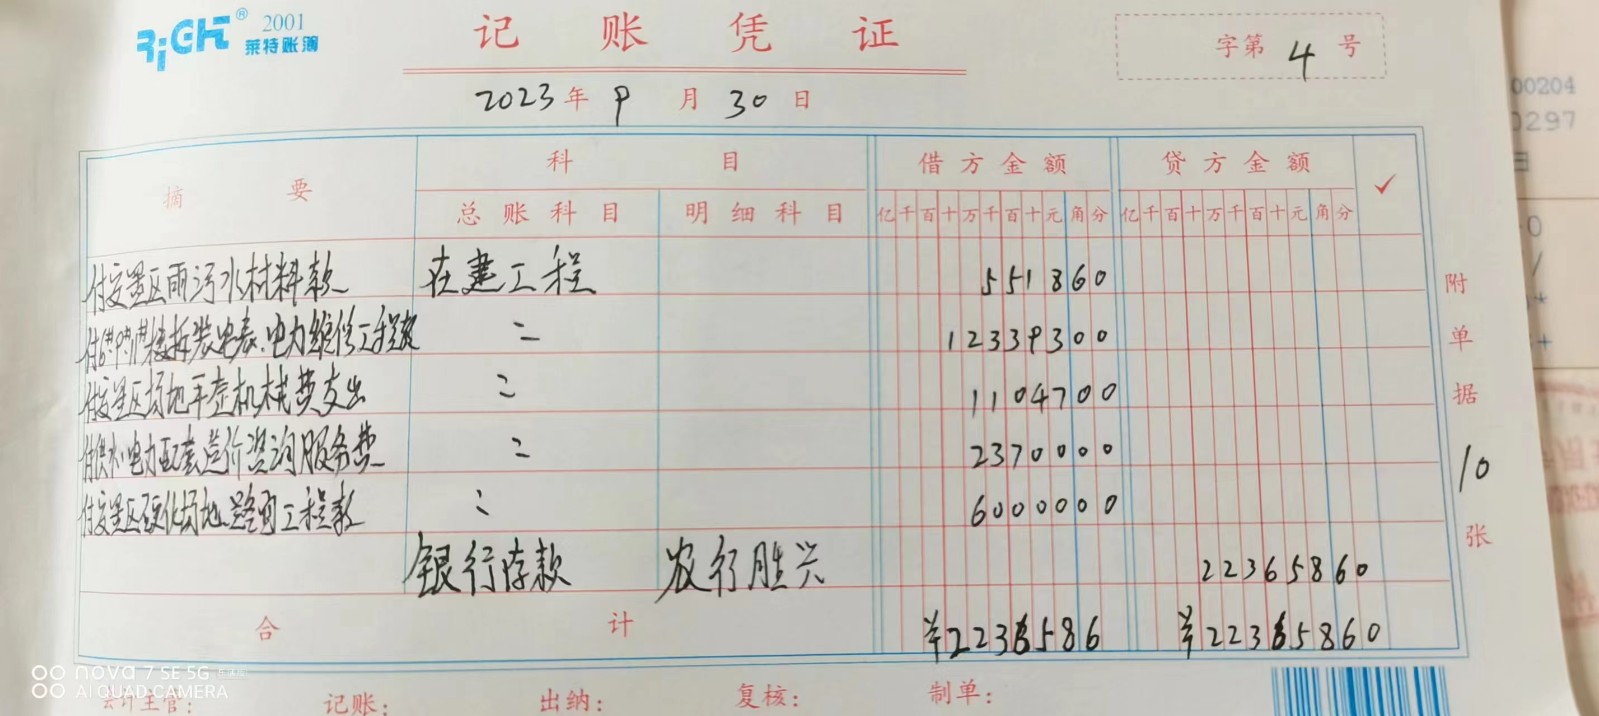 RiGHT® 2001
莱特账簿
记账凭证
字第 4 号
2023 年 9 月 30 日
摘要 科目 借方金额 贷方金额 ✓
总账科目 明细科目 亿千百十万千百十元角分 亿千百十万千百十元角分
付安置区雨污水材料款 在建工程 551860
拆装电表、电力维修工程款 〃 12339300
付安置区场地平整机械费支出 〃 1104700
付供水、电力配套造价咨询服务费 〃 2370000
付安置区硬化场地、路面工程款 〃 6000000
银行存款 农行胜兴 22365860
合计 ¥2236586 ¥22365860
附单据 10 张
会计主管: 记账: 出纳: 复核: 制单:
nova 7 SE 5G
AI QUAD CAMERA
00204
0297